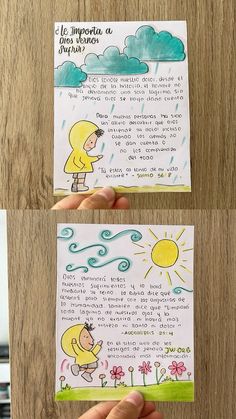 ¿Le Importa a
Dios Vernos
Sufrir?
Dios conoce nuestro dolor, desde el
inicio de la historia, el hombre no
ha derramado una sola lágrima sin
que Jehová Dios se haya dado cuenta
Para muchas personas ha sido
un alivio descubrir que Dios
entiende su dolor incluso
cuando los demás no
se dan cuenta o
no los comprenden
del todo
"Tú estás al tanto de mi vida
errante" - Salmo 56:8
Dios eliminará todos
nuestros sufrimientos y lo
hará mediante su reino. La Biblia dice que
para siempre con las angustias de
la humanidad. También dice que "limpiará
toda lágrima de nuestros ojos y la
muerte ya no existirá ni habrá más
tristeza ni llanto ni dolor"
- Apocalipsis 21:4
En el sitio web de los
testigos de Jehová JW.ORG
encontrará más información